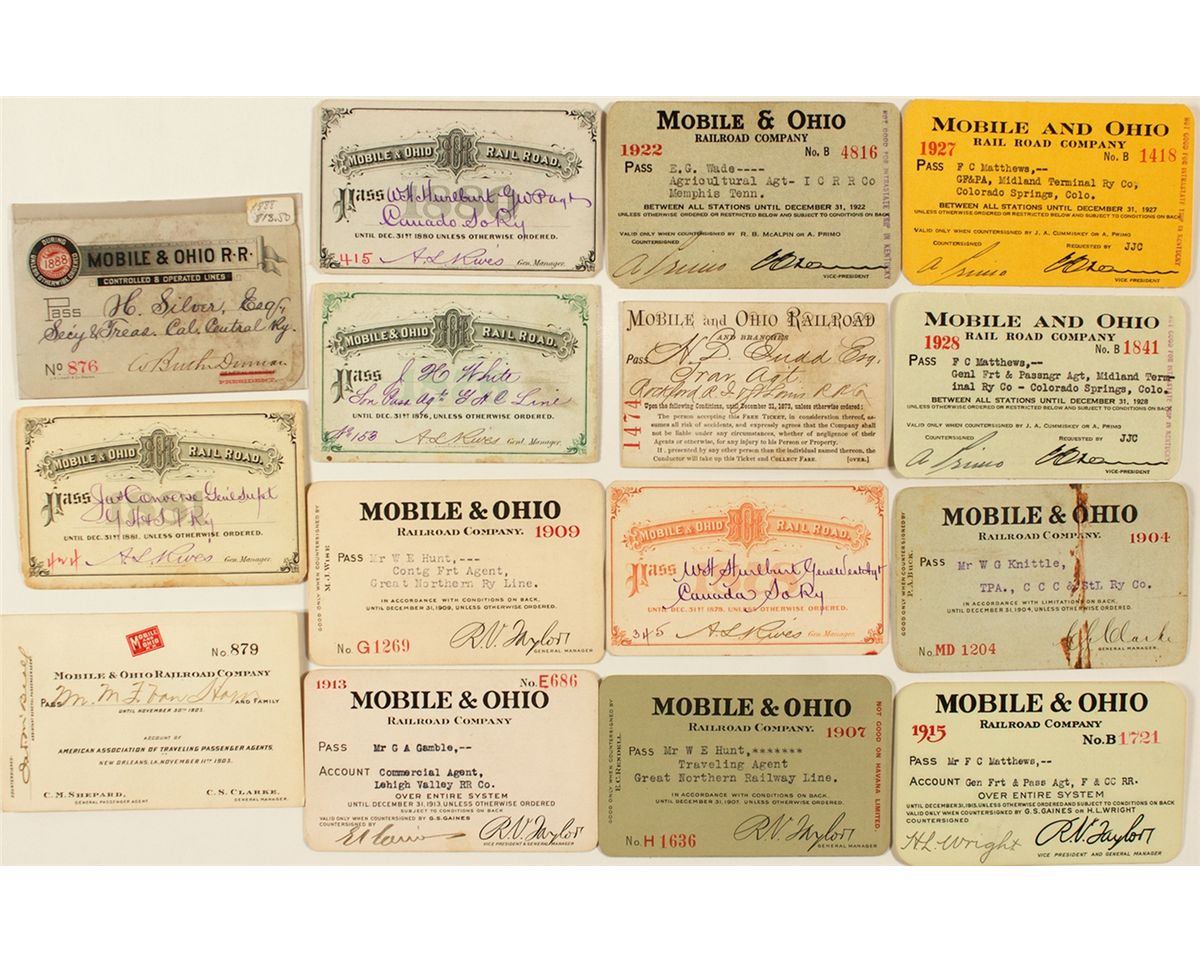 1888
$13.50
DURING
1888
UNLESS OTHERWISE ORDERED
MOBILE & OHIO R.R.
CONTROLLED & OPERATED LINES
Pass H. Silver, Esq.
Secy & Treas. Cal. Central Ry.
No 876
PRESIDENT.
MOBILE & OHIO RAIL ROAD.
Pass Jas Converse Genl Supt
G H & S A Ry
UNTIL DEC. 31ST 1881, UNLESS OTHERWISE ORDERED.
A L Rives Gen. Manager.
MOBILE & OHIO R.R.
No. 879
MOBILE & OHIO RAILROAD COMPANY
PASS AND FAMILY
UNTIL NOVEMBER 30TH 1903.
ACCOUNT OF
AMERICAN ASSOCIATION OF TRAVELING PASSENGER AGENTS,
NEW ORLEANS, LA. NOVEMBER 11TH 1903.
C. M. SHEPARD, C. S. CLARKE,
GENERAL PASSENGER AGENT GENERAL MANAGER.
COUNTERSIGNED
MOBILE & OHIO RAIL ROAD.
1880
Pass W H Hurlburt G W P Agt
Canada So Ry
UNTIL DEC. 31ST 1880 UNLESS OTHERWISE ORDERED.
415 A L Rives Gen. Manager.
MOBILE & OHIO RAIL ROAD.
Pass J H White
UNTIL DEC. 31ST 1876, UNLESS OTHERWISE ORDERED.
No 153 A L Rives Genl. Manager.
MOBILE & OHIO
RAILROAD COMPANY. 1909
PASS Mr W E Hunt,---
Contg Frt Agent,
Great Northern Ry Line.
IN ACCORDANCE WITH CONDITIONS ON BACK,
UNTIL DECEMBER 31, 1909, UNLESS OTHERWISE ORDERED.
No. G1269 R.V. Taylor
GENERAL MANAGER
GOOD ONLY WHEN COUNTERSIGNED BY
M. J. WISE
1913 No. E686
MOBILE & OHIO
RAILROAD COMPANY
PASS Mr G A Gamble,--
ACCOUNT Commercial Agent,
Lehigh Valley RR Co.
OVER ENTIRE SYSTEM
UNTIL DECEMBER 31, 1913, UNLESS OTHERWISE ORDERED
SUBJECT TO CONDITIONS ON BACK
VALID ONLY WHEN COUNTERSIGNED BY G. S. GAINES
COUNTERSIGNED BY
R.V. Taylor
VICE PRESIDENT & GENERAL MANAGER
MOBILE & OHIO
RAILROAD COMPANY
1922 No. B 4816
PASS E.G. Wade----
Agricultural Agt- I C R R Co
Memphis Tenn.
BETWEEN ALL STATIONS UNTIL DECEMBER 31, 1922
UNLESS OTHERWISE ORDERED OR RESTRICTED BELOW AND SUBJECT TO CONDITIONS ON BACK
VALID ONLY WHEN COUNTERSIGNED BY R. B. MCALPIN OR A. PRIMO
COUNTERSIGNED
A Primo
VICE PRESIDENT
NOT GOOD FOR INTRASTATE TRIP IN KENTUCKY
MOBILE and OHIO RAILROAD
AND BRANCHES
Pass
Trav Agt
Rockford R. I. & St Louis R R Co
Upon the following Conditions, until December 31, 1873, unless otherwise ordered:
The person accepting this FREE TICKET, in consideration thereof, assumes all risk of accidents, and expressly agrees that the Company shall not be liable under any circumstances, whether of negligence of their Agents or otherwise, for any injury to his Person or Property.
If presented by any other person than the individual named thereon, the Conductor will take up this Ticket and COLLECT FARE. [OVER.]
1474
MOBILE & OHIO RAIL ROAD.
Pass W H Hurlburt Genl West Agt
Canada So Ry
UNTIL DEC. 31ST 1879, UNLESS OTHERWISE ORDERED.
345 A L Rives Gen. Manager.
MOBILE & OHIO
RAILROAD COMPANY. 1907
PASS Mr W E Hunt, *******
Traveling Agent
Great Northern Railway Line.
IN ACCORDANCE WITH CONDITIONS ON BACK,
UNTIL DECEMBER 31, 1907, UNLESS OTHERWISE ORDERED.
No. H 1636 R.V. Taylor
GENERAL MANAGER
GOOD ONLY WHEN COUNTERSIGNED BY
E. C. RENDELL
NOT GOOD ON HAVANA LIMITED.
MOBILE AND OHIO
RAIL ROAD COMPANY
1927 No. B 1418
PASS F C Matthews,--
GF&PA, Midland Terminal Ry Co,
Colorado Springs, Colo.
BETWEEN ALL STATIONS UNTIL DECEMBER 31, 1927
UNLESS OTHERWISE ORDERED OR RESTRICTED BELOW AND SUBJECT TO CONDITIONS ON BACK
VALID ONLY WHEN COUNTERSIGNED BY J. A. CUMMISKEY OR A. PRIMO
COUNTERSIGNED REQUESTED BY JJC
A Primo
VICE-PRESIDENT
NOT GOOD FOR INTRASTATE TRIP IN KENTUCKY
MOBILE AND OHIO
RAIL ROAD COMPANY
1928 No. B 1841
PASS F C Matthews,--
Genl Frt & Passngr Agt, Midland Term-
inal Ry Co - Colorado Springs, Colo.
BETWEEN ALL STATIONS UNTIL DECEMBER 31, 1928
UNLESS OTHERWISE ORDERED OR RESTRICTED BELOW AND SUBJECT TO CONDITIONS ON BACK
VALID ONLY WHEN COUNTERSIGNED BY J. A. CUMMISKEY OR A. PRIMO
COUNTERSIGNED REQUESTED BY JJC
A Primo
VICE-PRESIDENT
NOT GOOD FOR INTRASTATE TRIP IN KENTUCKY
MOBILE & OHIO
RAILROAD COMPANY. 1904
PASS Mr W G Knittle,
TPA., C C C & StL Ry Co.
IN ACCORDANCE WITH LIMITATIONS ON BACK,
UNTIL DECEMBER 31, 1904, UNLESS OTHERWISE ORDERED.
No. MD 1204 C S Clarke
GENERAL MANAGER
GOOD ONLY WHEN COUNTERSIGNED BY
P. A. BUCK.
MOBILE & OHIO
RAILROAD COMPANY
1915 No. B 1721
PASS Mr F C Matthews,--
ACCOUNT Gen Frt & Pass Agt, F & CC RR.
OVER ENTIRE SYSTEM
UNTIL DECEMBER 31, 1915, UNLESS OTHERWISE ORDERED AND SUBJECT TO CONDITIONS ON BACK
VALID ONLY WHEN COUNTERSIGNED BY G. S. GAINES OR H. L. WRIGHT
COUNTERSIGNED
H L Wright R.V. Taylor
VICE PRESIDENT AND GENERAL MANAGER